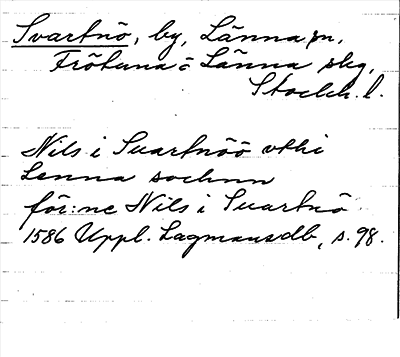 Svartnö, by, Länna sn,
Frötuna o Länna skg,
Stockh. l.
Nils i Suartnöö vthi
Lenna sochnn
för:ne Nils i Suartnö
1586 Uppl. Lagmansdb, s. 98.